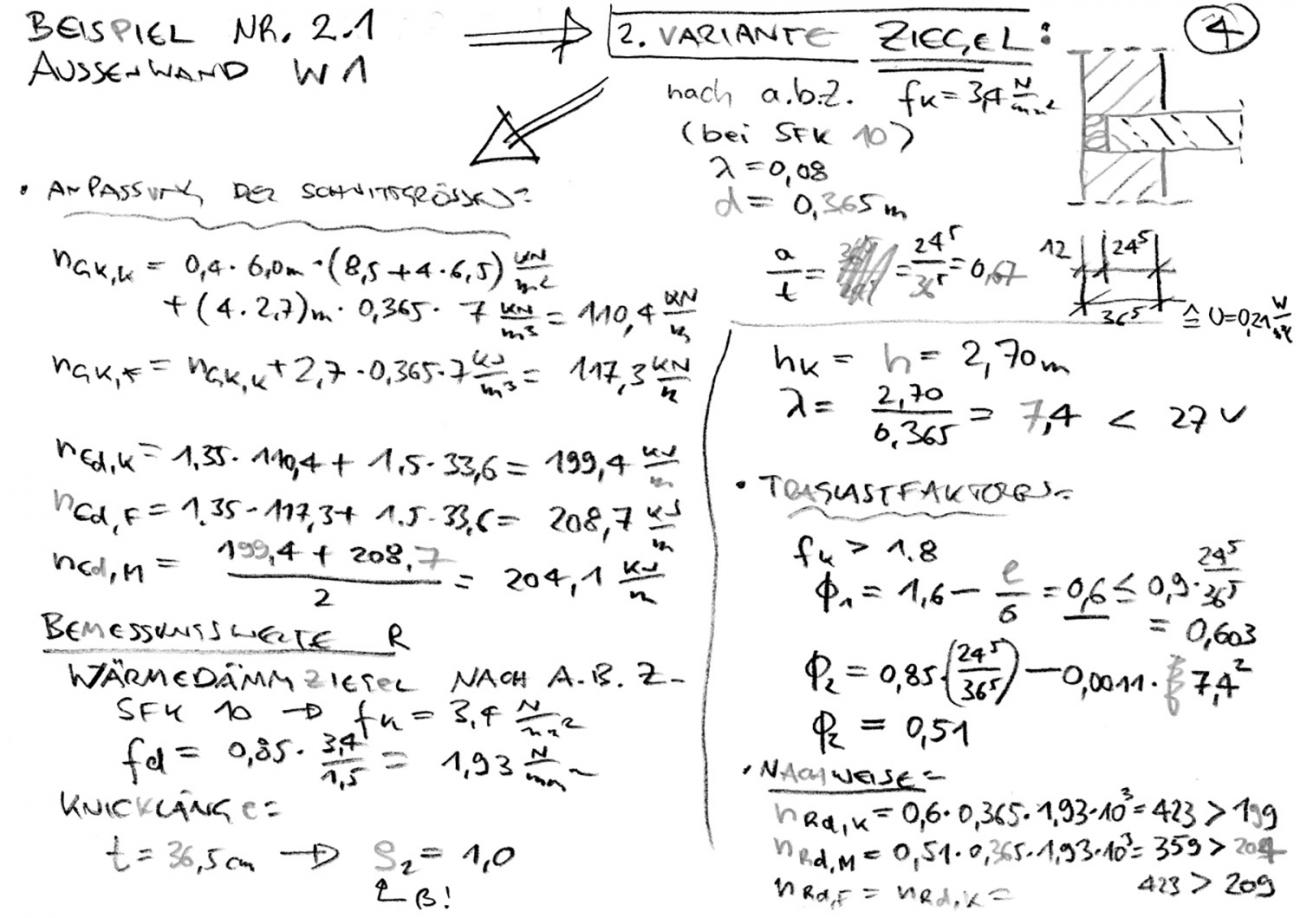 BEISPIEL NR. 2.1
AUSSENWAND W1
2. VARIANTE ZIEGEL:
4
nach a.b.Z. fk = 3,4 N/mm²
(bei SFK 10)
λ = 0,08
d = 0,365 m
a/t = = 24⁵/36⁵ = 0,67
12 24⁵
36⁵ ≙ U=0,21 W/m²K
• ANPASSUNG DER SCHNITTGRÖSSEN:
nGK,K = 0,4 · 6,0m · (8,5 + 4 · 6,5) kN/m²
+ (4 · 2,7)m · 0,365 · 7 kN/m³ = 110,4 kN/m
nGK,F = nGK,K + 2,7 · 0,365 · 7 kN/m³ = 117,3 kN/m
nEd,K = 1,35 · 110,4 + 1,5 · 33,6 = 199,4 kN/m
nEd,F = 1,35 · 117,3 + 1,5 · 33,6 = 208,7 kN/m
nEd,M = (199,4 + 208,7)/2 = 204,1 kN/m
BEMESSUNGSWERTE R
WÄRMEDÄMMZIEGEL NACH A.B.Z.
SFK 10 → fk = 3,4 N/mm²
fd = 0,85 · 3,4/1,5 = 1,93 N/mm²
KNICKLÄNGE:
t = 36,5 cm → ρ₂ = 1,0
↑ B!
hK = h = 2,70 m
λ = 2,70/0,365 = 7,4 < 27 ✓
• TRAGLASTFAKTOREN:
fk > 1.8
ϕ₁ = 1,6 − e/6 = 0,6 ≤ 0,9 · 24⁵/36⁵
= 0,603
ϕ₂ = 0,85 · (24⁵/36⁵) − 0,0011 · 7,4²
ϕ₂ = 0,51
• NACHWEISE:
nRd,K = 0,6 · 0,365 · 1,93 · 10³ = 423 > 199
nRd,M = 0,51 · 0,365 · 1,93 · 10³ = 359 > 204
nRd,F = nRd,K = 423 > 209